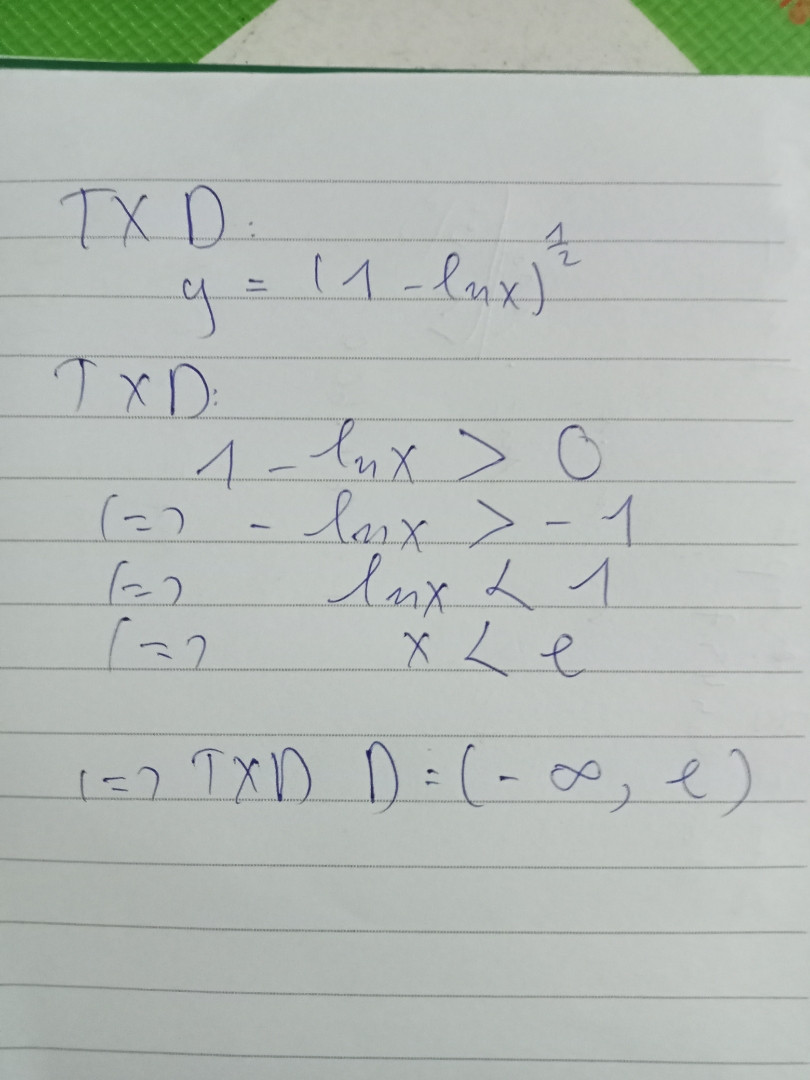 TXD:
y = (1 - lnx)^{\frac{1}{2}}
TXD:
1 - lnx > 0
(=) - lnx > - 1
(=) lnx < 1
(=) x < e
(=) TXD D = (- ∞, e)